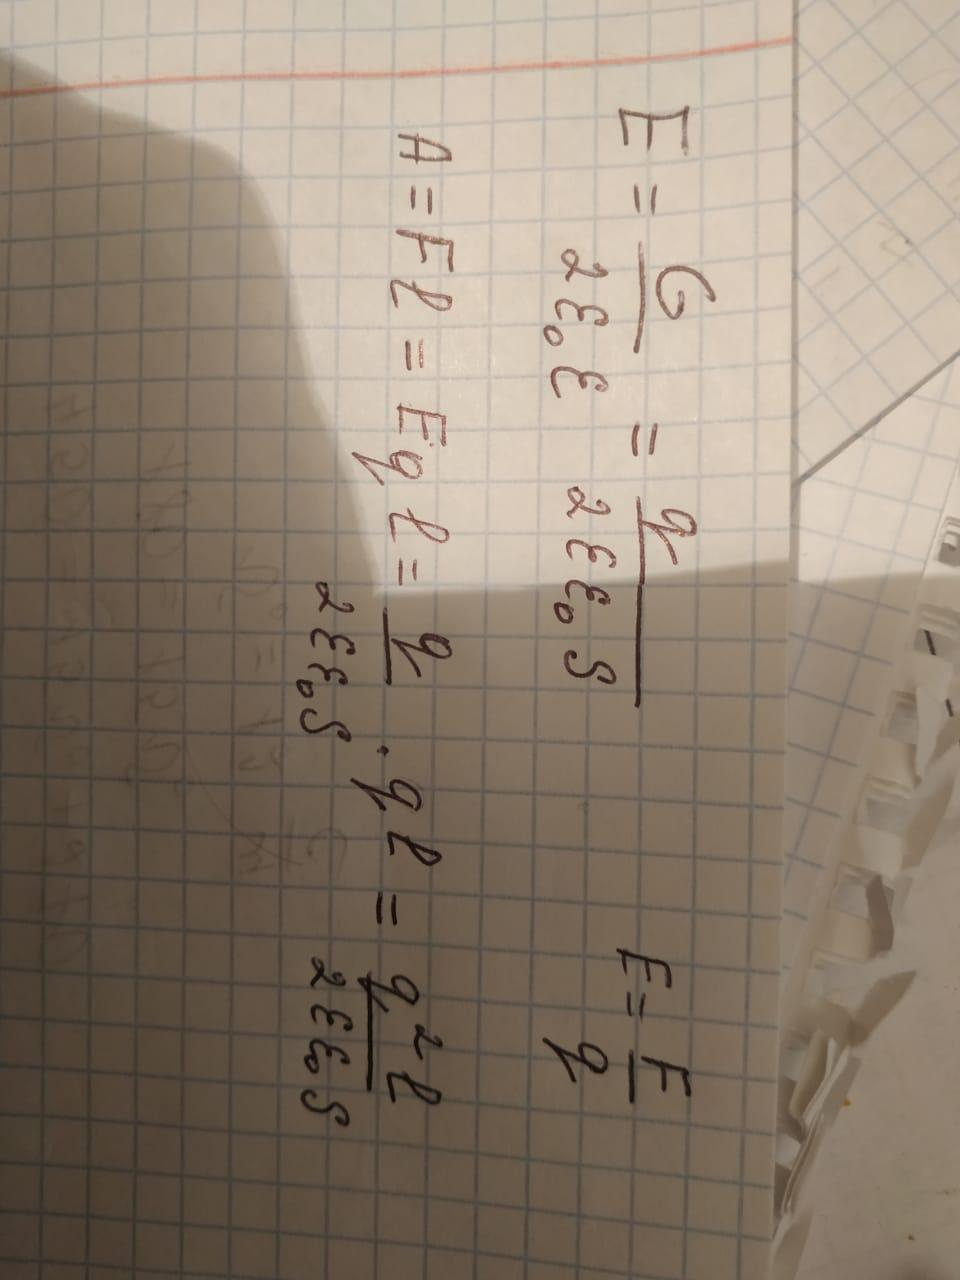 E = σ/(2ε₀ε) = q/(2εε₀S)   E = F/q
A = Fl = Eql = q/(2εε₀S) · ql = q²l/(2εε₀S)